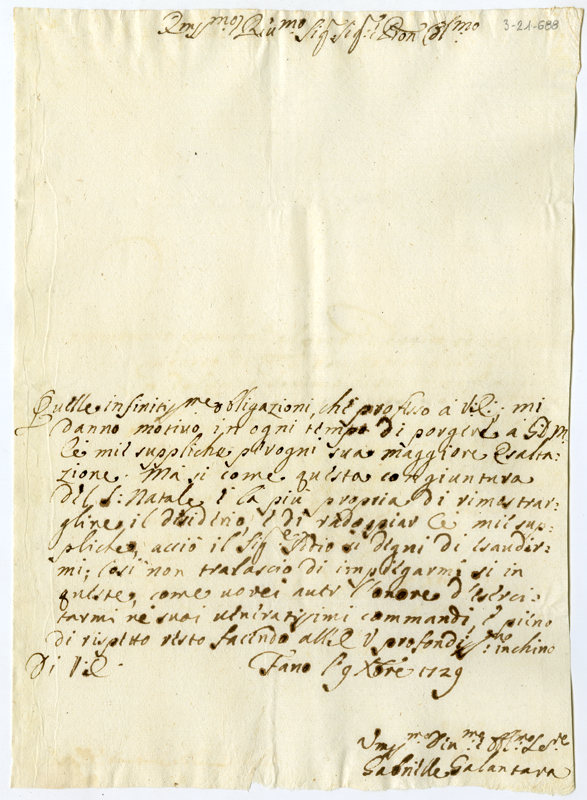 Ill.mo Rev.mo Sig.r Sig.r Pron Col.mo 3-21-688
Quelle infinitissme obligazioni, che professo a V.E. mi
danno motivo in ogni tempo di porgere a S.D.M.
le mie suppliche per ogni sua maggiore Esalta-
zione. Ma si come questa congiuntura
del S. Natale è la più propria di rimostrar-
gliene il disiderio, e di radoppiar le mie sup-
pliche, acciò il Sig.e Iddio si degni di Esaudir-
mi; Così non tralascio di impiegarmi si in
queste, come vorei auer l'onore d'Eserci-
tarmi ne suoi veneratissimi commandi, e pieno
di rispetto resto facendo all'E V profondiss.mo inchino
Di V.E. Fano li 9 Xbre 1729
Um.mo Div.mo
Gabrielle Galantara